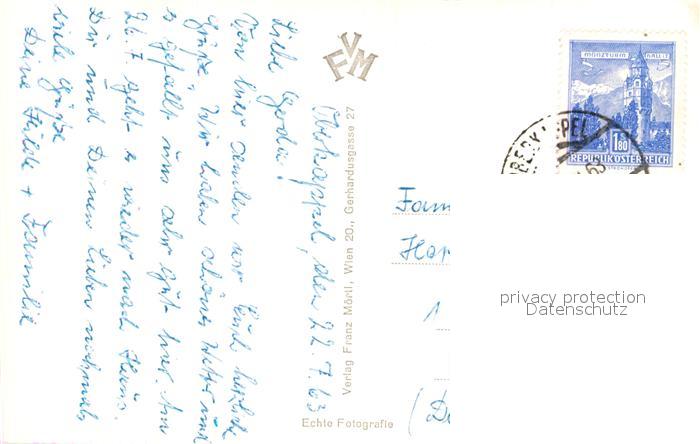 Obskappel, den 22.7.63
Liebe Gerda!
Von hier senden wir Euch herzliche
Grüße. Wir haben schönes Wetter und
es gefällt uns sehr gut hier. Am
26.7. geht es wieder nach Hause.
Dir und Deinen Lieben nochmals
viele Grüße
Deine Hilde + Familie
VFM
Verlag Franz Mörtl, Wien 20., Gerhardusgasse 27
Echte Fotografie
MÜNZTURM HALL i. T.
1.80
REPUBLIK ÖSTERREICH
Fam
Har
1
(D
privacy protection
Datenschutz